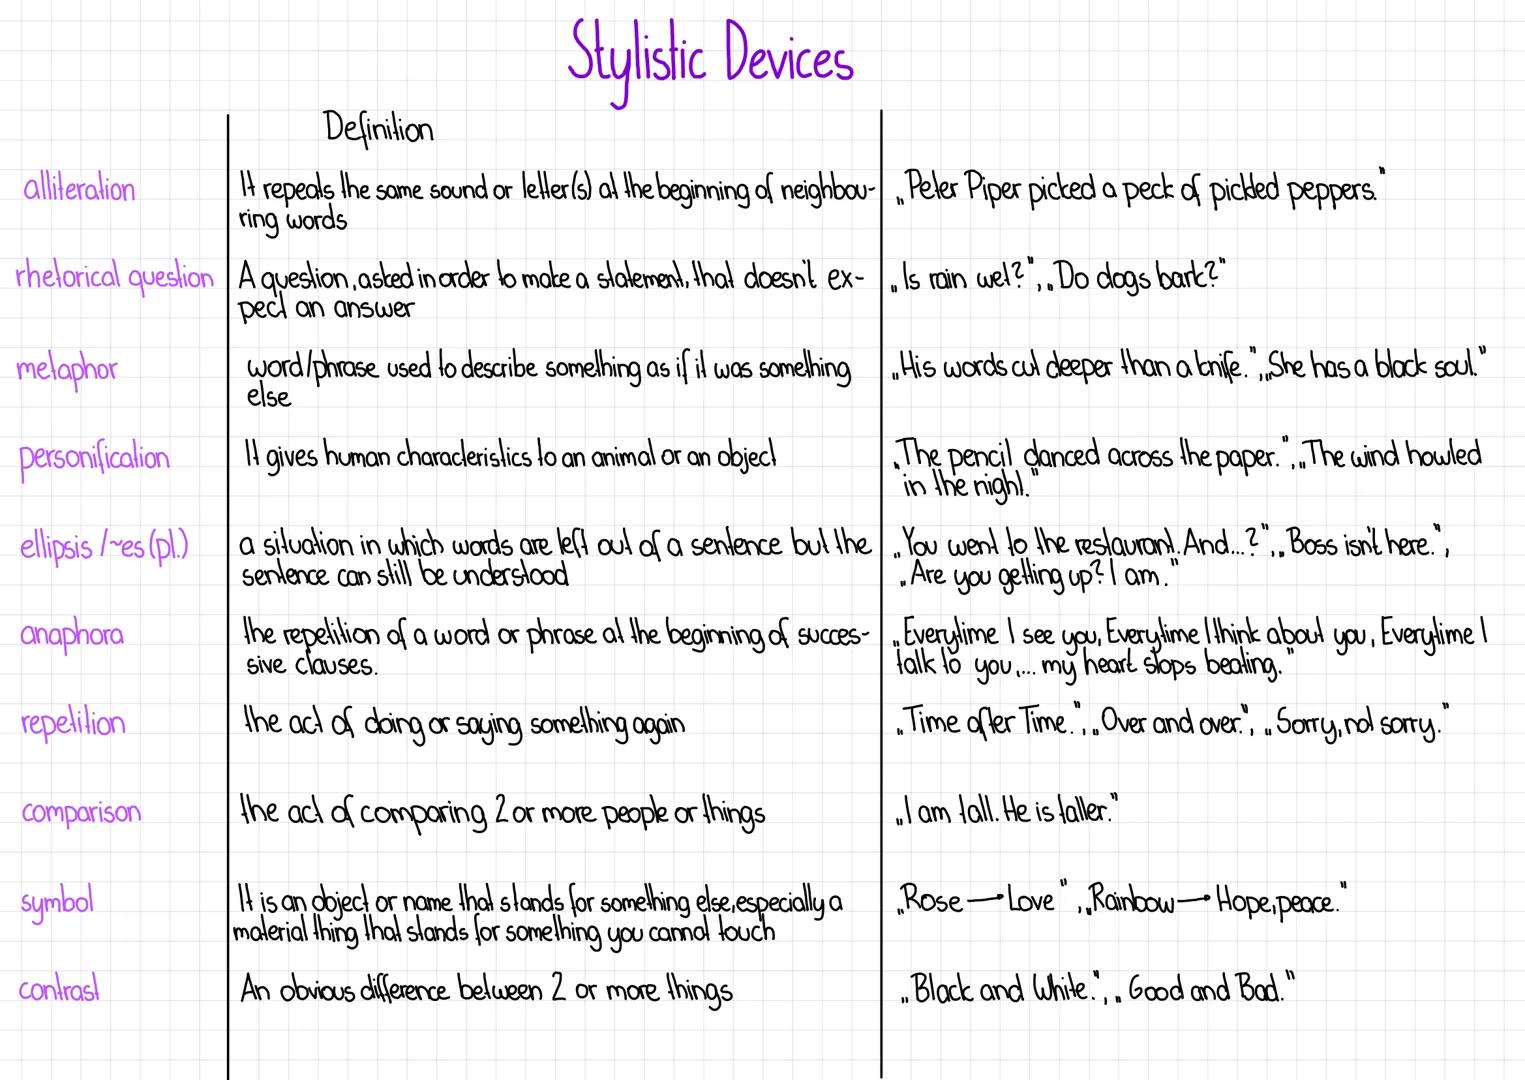 Stylistic Devices
Definition
alliteration
It repeats the same sound or letter(s) at the beginning of neighbou-
ring words
„Peter Piper picked a peck of pickled peppers."
rhetorical question
A question, asked in order to make a statement, that doesn't ex-
pect an answer
„Is rain wet?", „Do dogs bark?"
metaphor
word/phrase used to describe something as if it was something
else
„His words cut deeper than a knife.", „She has a black soul."
personification
It gives human characteristics to an animal or an object
„The pencil danced across the paper.", „The wind howled
in the night."
ellipsis /~es (pl.)
a situation in which words are left out of a sentence but the
sentence can still be understood
„You went to the restaurant. And...?", „Boss isn't here.",
„Are you getting up? I am."
anaphora
the repetition of a word or phrase at the beginning of succes-
sive clauses.
„Everytime I see you, Everytime I think about you, Everytime I
talk to you,... my heart stops beating."
repetition
the act of doing or saying something again
„Time after Time.", „Over and over.", „Sorry, not sorry."
comparison
the act of comparing 2 or more people or things
„I am tall. He is taller."
symbol
It is an object or name that stands for something else, especially a
material thing that stands for something you cannot touch
„Rose → Love", „Rainbow → Hope, peace."
contrast
An obvious difference between 2 or more things
„Black and White.", „Good and Bad."